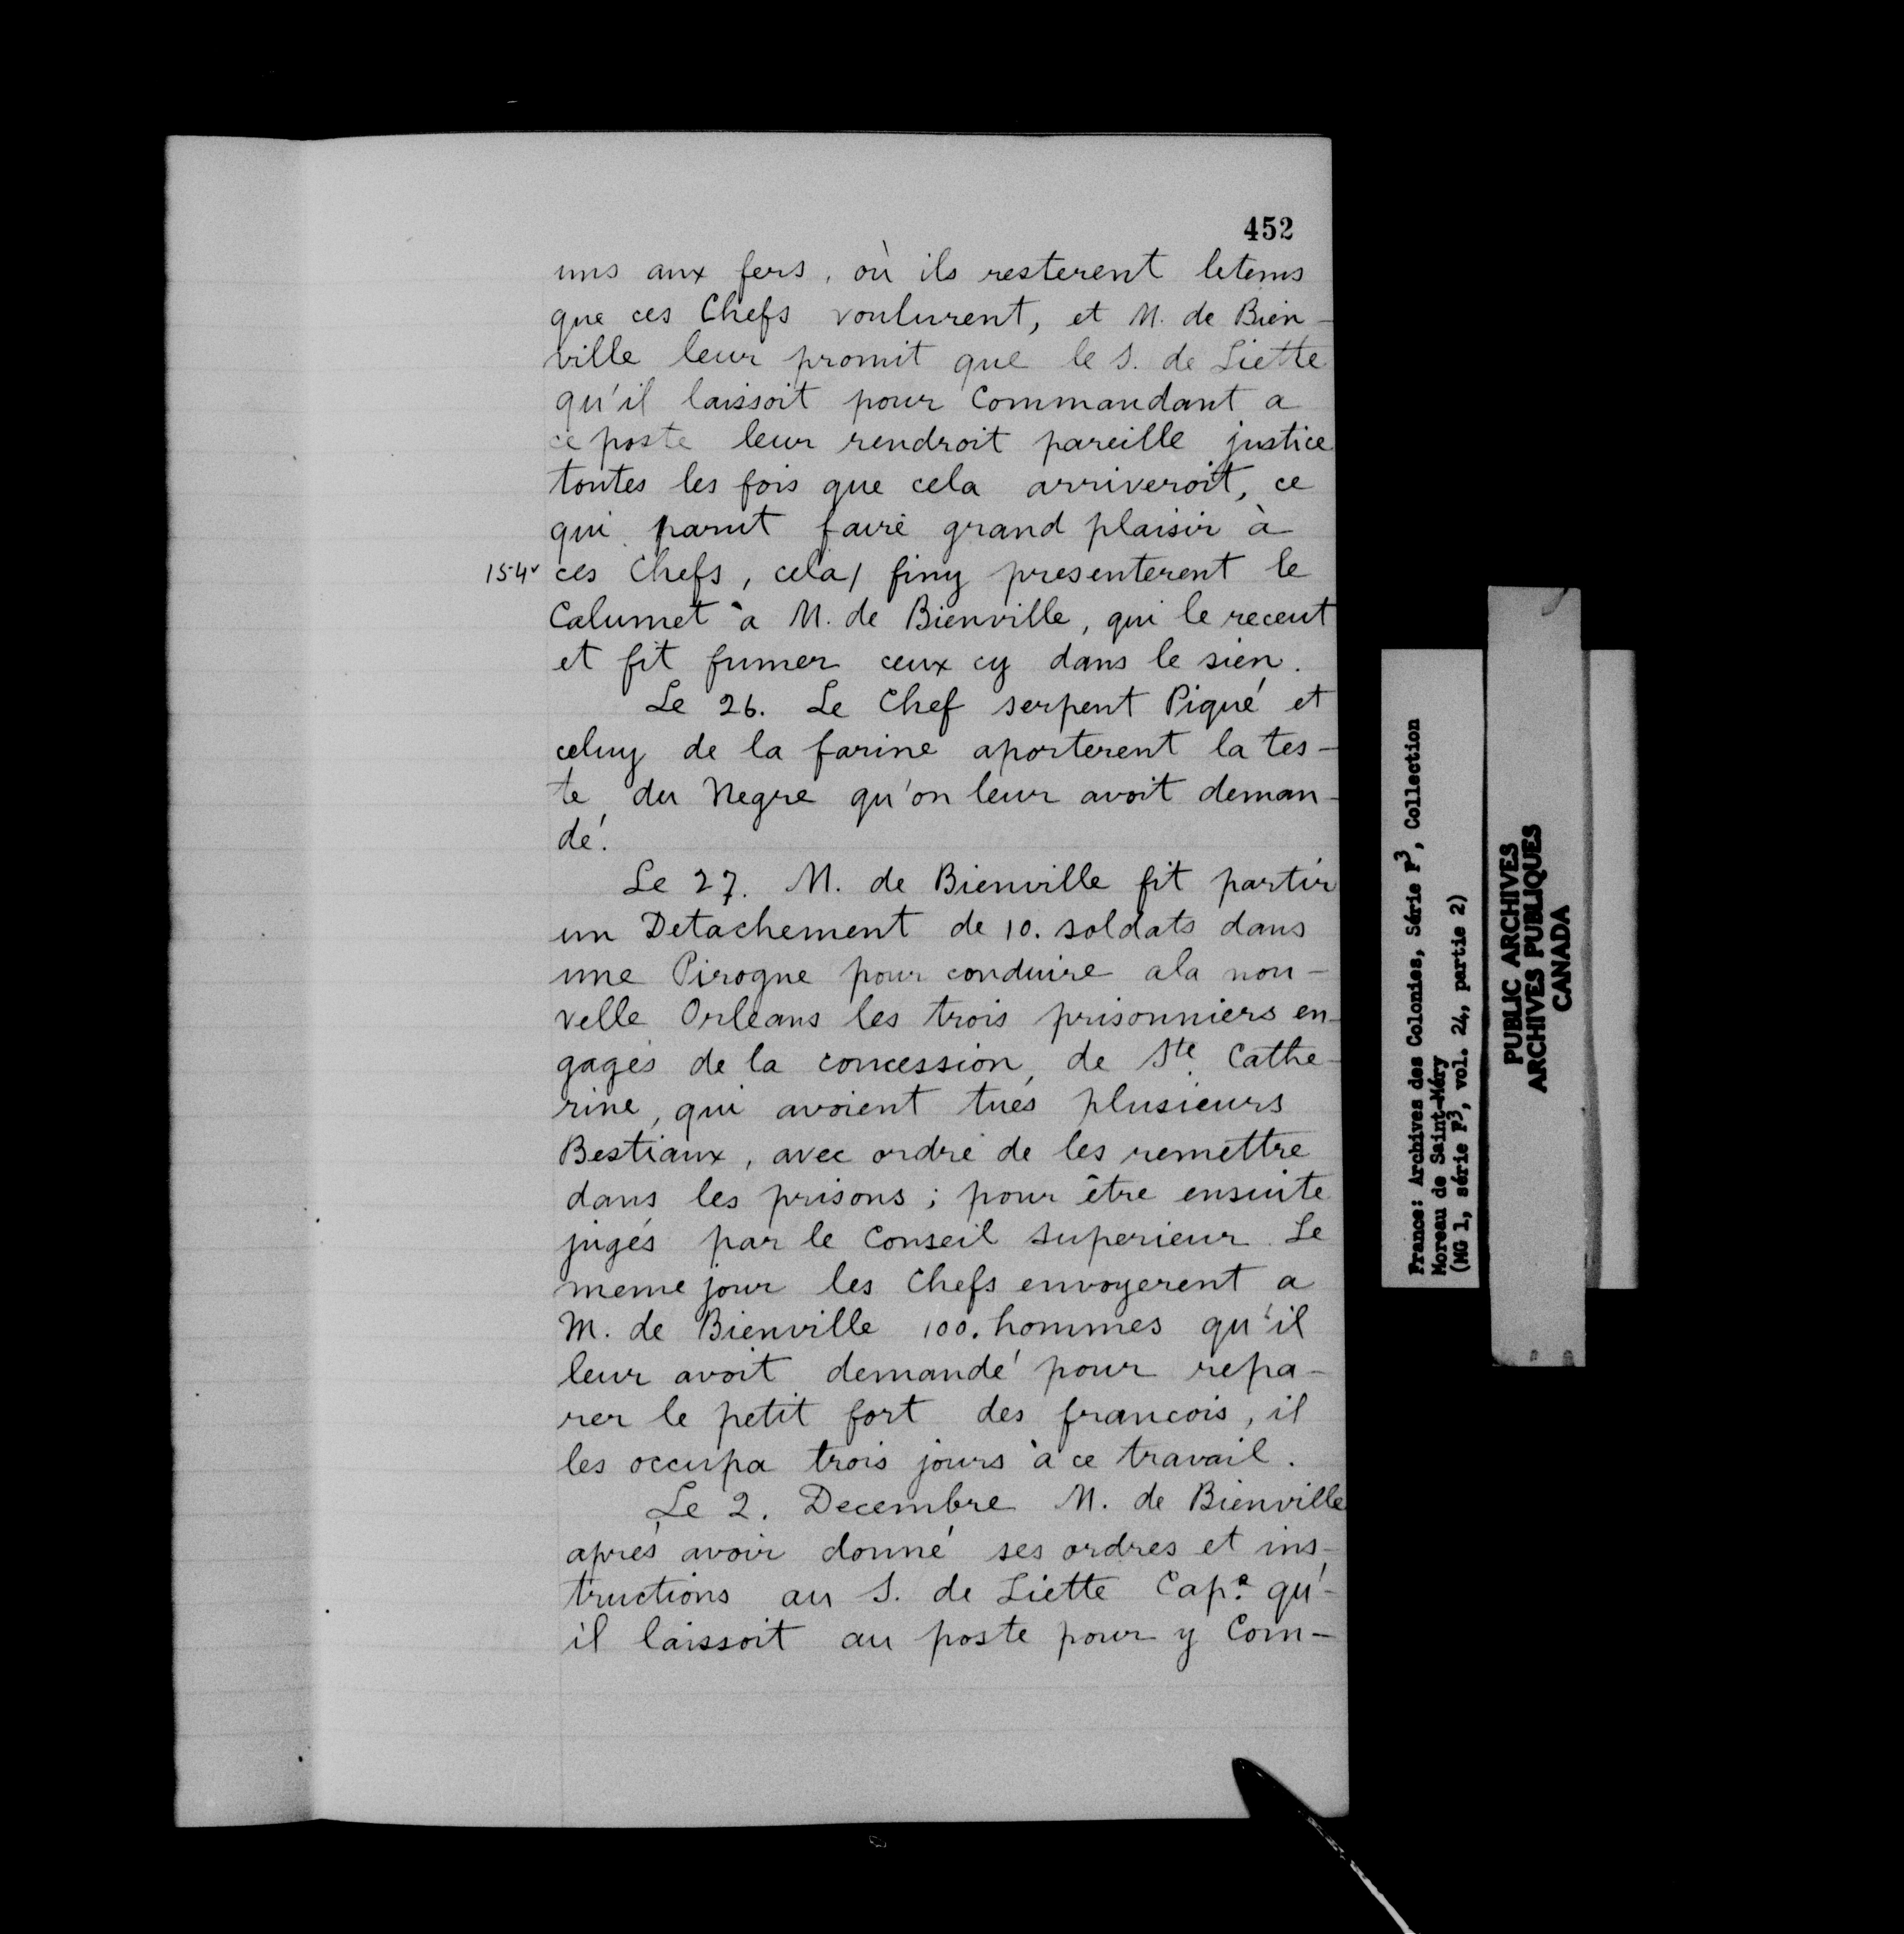 452
uns aux fers, où ils resterent letems
que ces Chefs voulurent, et M. de Bien-
ville leur promit que le S. de Liette
qu'il laissoit pour Commandant a
ce poste leur rendroit pareille justice
toutes les fois que cela arriveroit, ce
qui parut faire grand plaisir à
154v ces Chefs, cela/ finy presenterent le
Calumet à M. de Bienville, qui le receut
et fit fumer ceux cy dans le sien.
Le 26. Le Chef serpent Piqué et
celuy de la farine aporterent la tes-
te du Negre qu'on leur avoit deman-
dé.
Le 27. M. de Bienville fit partir
un Detachement de 10. soldats dans
une Pirogue pour conduire ala nou-
velle Orleans les trois prisonniers en-
gagés de la concession, de Ste Cathe-
rine, qui avoient tués plusieurs
Bestiaux, avec ordre de les remettre
dans les prisons; pour être ensuite
jugés par le Conseil superieur. Le
meme jour les Chefs envoyerent a
M. de Bienville 100. hommes qu'il
leur avoit demandé pour repa-
rer le petit fort des francois, il
les occupa trois jours à ce travail.
Le 2. Decembre M. de Bienville
aprés avoir donné ses ordres et ins-
tructions au S. de Liette Cap.e qu'-
il laissoit au poste pour y Com-
France: Archives des Colonies, Série F3, Collection
Moreau de Saint-Méry
(MG 1, série F3, vol. 24, partie 2)
PUBLIC ARCHIVES
ARCHIVES PUBLIQUES
CANADA